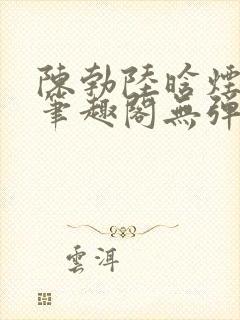 陳勃陸晗煙
筆趣閣無彈
雲洱